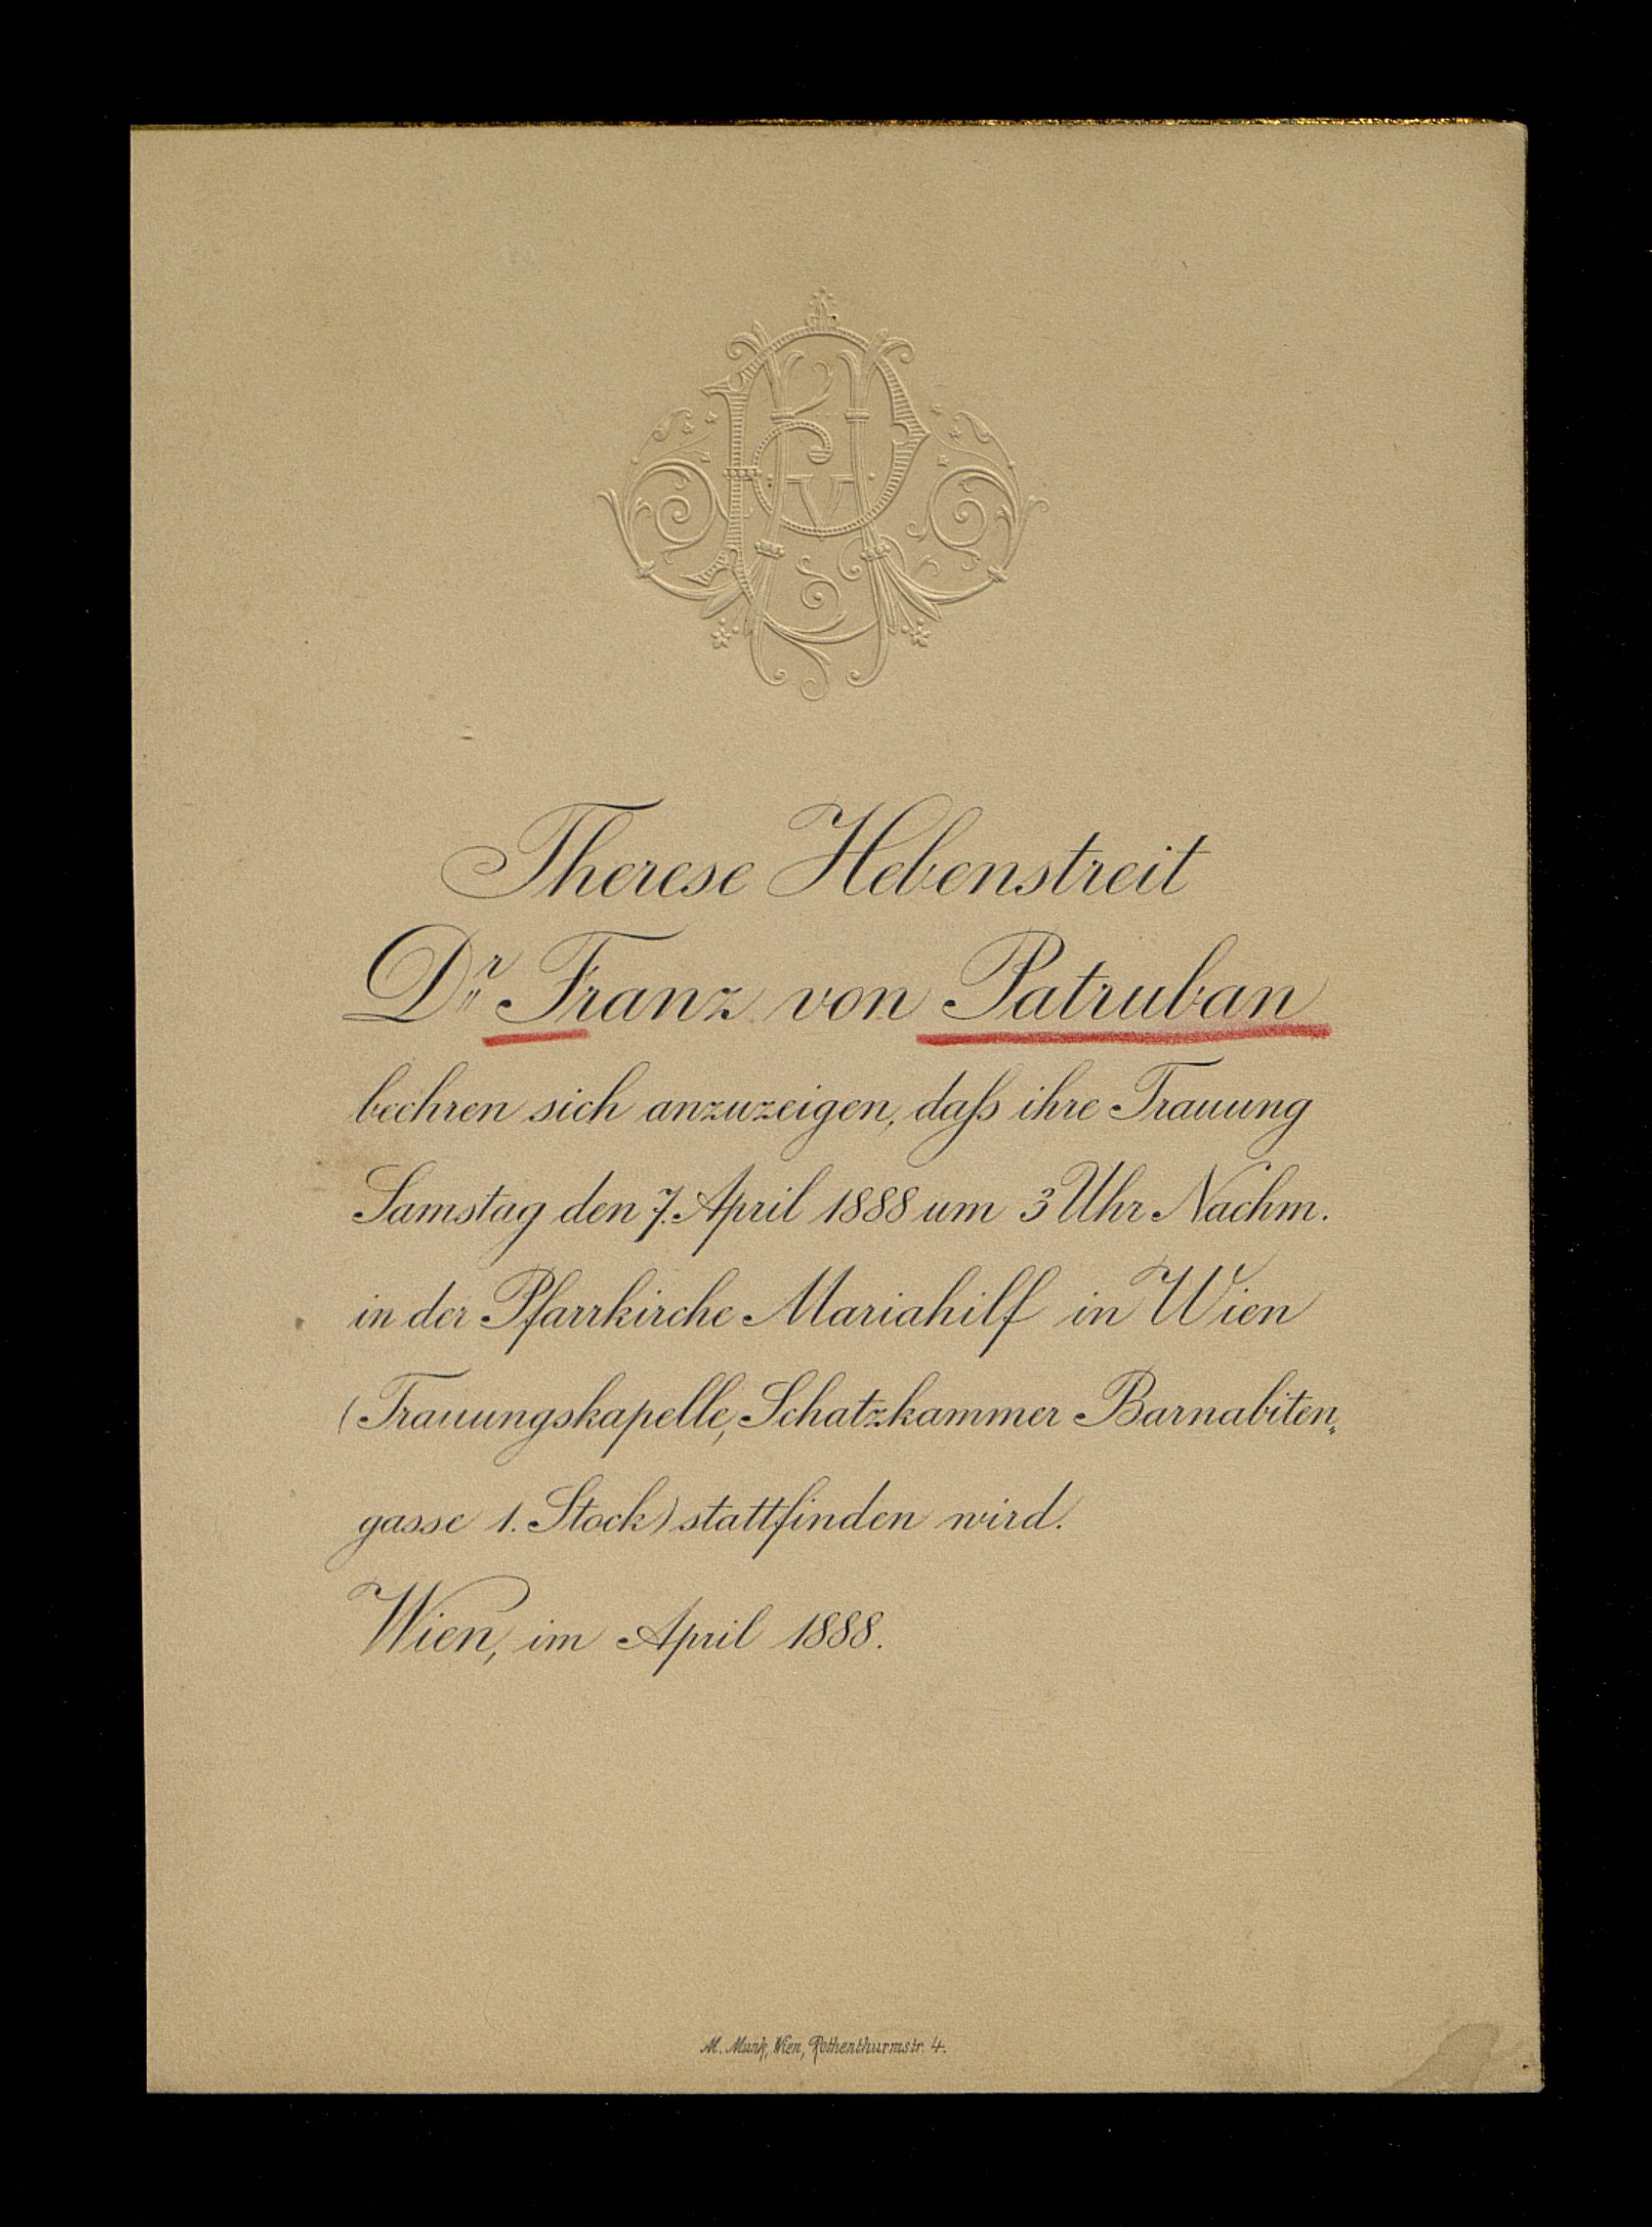 Therese Hebenstreit
Dr. Franz von Patruban
beehren sich anzuzeigen, daß ihre Trauung
Samstag den 7. April 1888 um 3 Uhr Nachm.
in der Pfarrkirche Mariahilf in Wien
(Trauungskapelle, Schatzkammer Barnabiten„
gasse 1. Stock) stattfinden wird.
Wien, im April 1888.
M. Munk, Wien, Rothenthurmstr. 4.